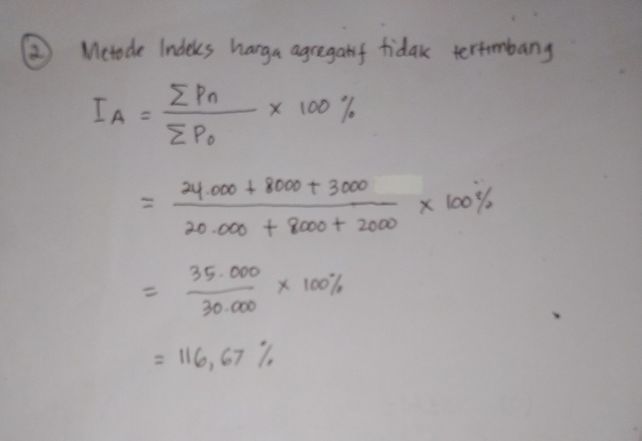 ② Metode Indeks harga agregatif tidak tertimbang
I A = Σ Pn / Σ Po × 100 %
= 24.000 + 8000 + 3000 / 20.000 + 8000 + 2000 × 100%
= 35.000 / 30.000 × 100%
= 116,67 %